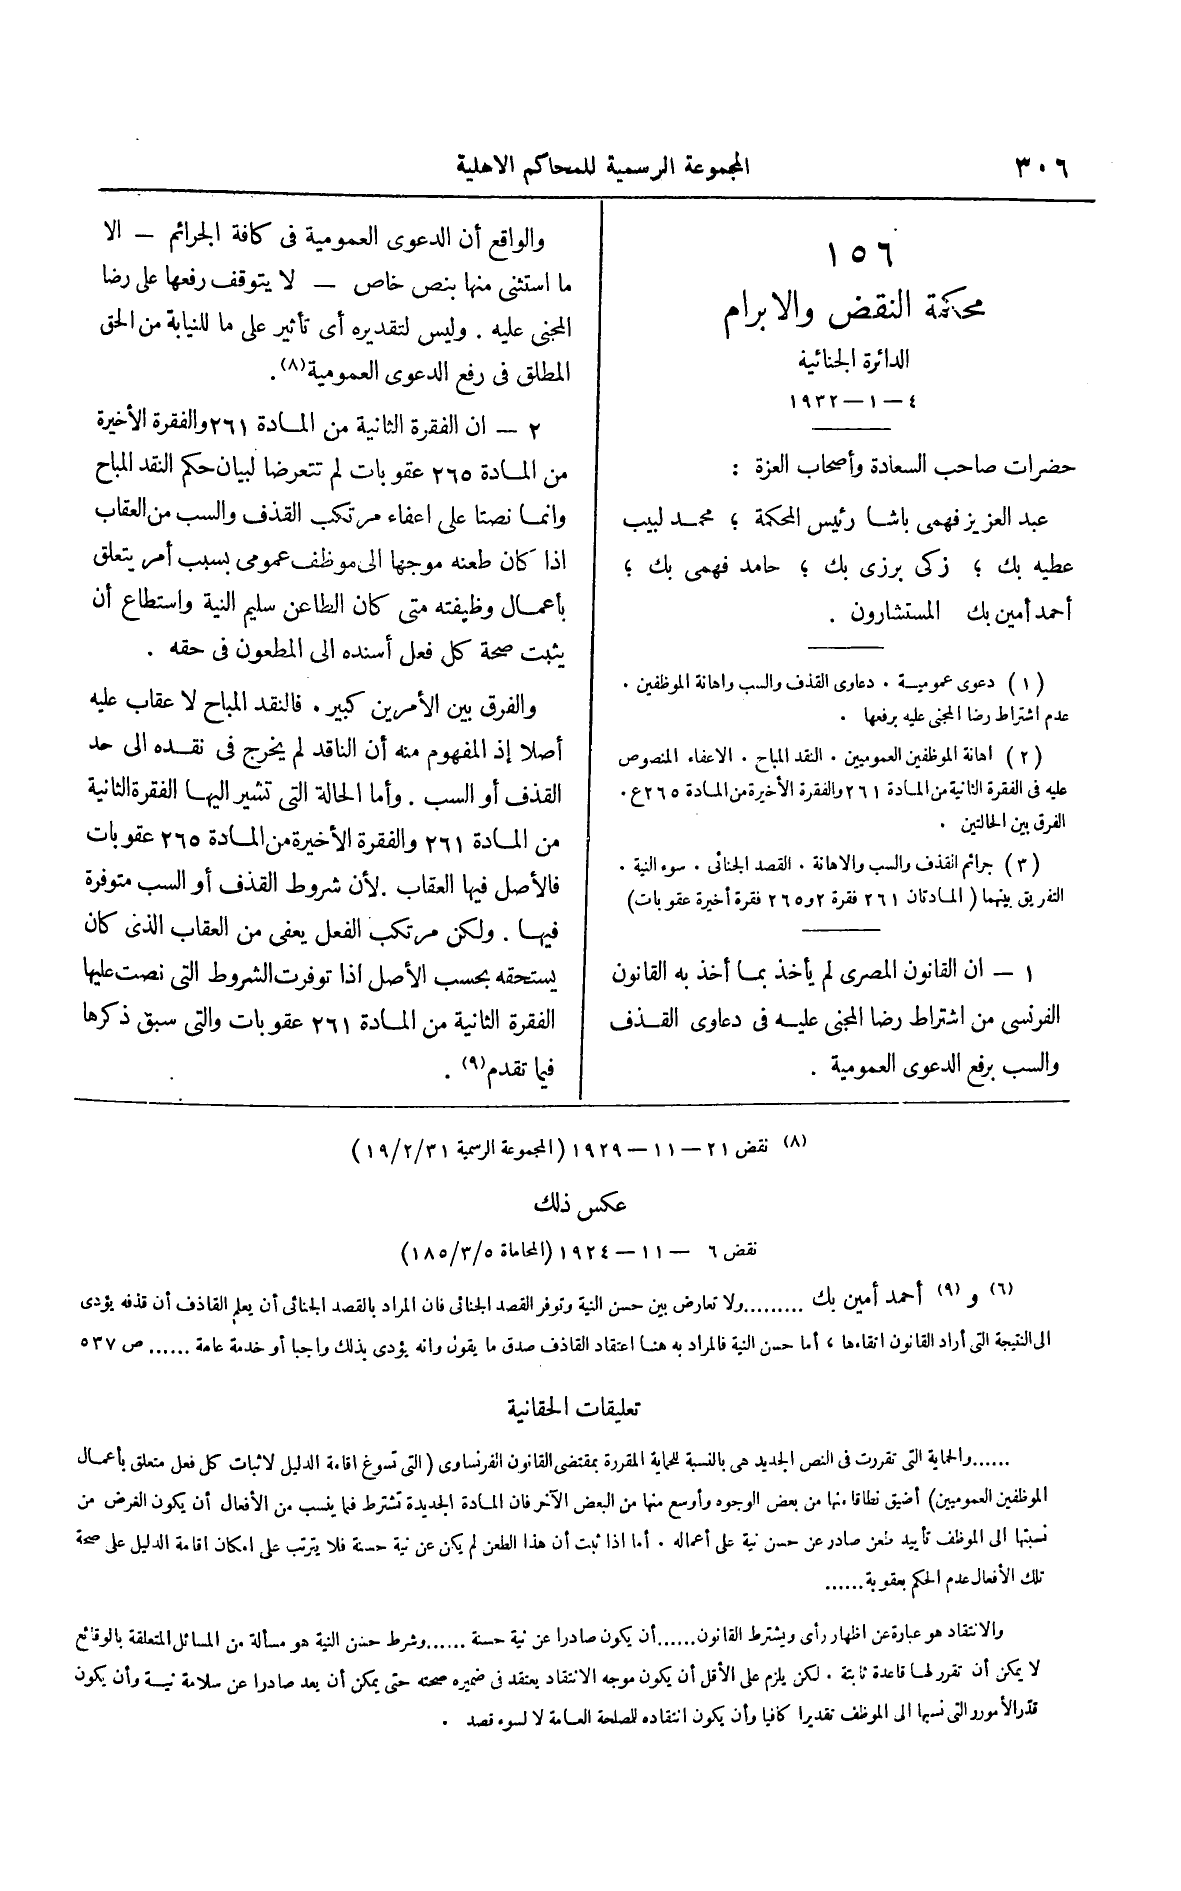 ٣٠٦
المجموعة الرسمية للمحاكم الاهلية
١٥٦
محكمة النقض والابرام
الدائرة الجنائية
٤ – ١ – ١٩٣٢
حضرات صاحب السعادة وأصحاب العزة :
عبد العزيز فهمى باشا رئيس المحكمة ؛ محمد لبيب
عطيه بك ؛ زكى برزى بك ؛ حامد فهمى بك ؛
أحمد أمين بك المستشارون .
(١) دعوى عمومية . دعاوى القذف والسب واهانة الموظفين .
عدم اشتراط رضا المجنى عليه برفعها .
(٢) اهانة الموظفين العموميين . النقد المباح . الاعفاء المنصوص
عليه فى الفقرة الثانية من المادة ٢٦١ والفقرة الأخيرة من المادة ٢٦٥ ع .
الفرق بين الحالتين .
(٣) جرائم القذف والسب والاهانة . القصد الجنائى . سوء النية .
التفريق بينهما ( المادتان ٢٦١ فقرة ٢ و ٢٦٥ فقرة أخيرة عقوبات)
١ – ان القانون المصرى لم يأخذ بما أخذ به القانون
الفرنسى من اشتراط رضا المجنى عليه فى دعاوى القذف
والسب برفع الدعوى العمومية .
والواقع أن الدعوى العمومية فى كافة الجرائم – الا
ما استثنى منها بنص خاص – لا يتوقف رفعها على رضا
المجنى عليه . وليس لتقديره أى تأثير على ما للنيابة من الحق
المطلق فى رفع الدعوى العمومية(٨).
٢ – ان الفقرة الثانية من المادة ٢٦١ والفقرة الأخيرة
من المادة ٢٦٥ عقوبات لم تتعرضا لبيان حكم النقد المباح
وانما نصتا على اعفاء مرتكب القذف والسب من العقاب
اذا كان طعنه موجها الى موظف عمومى بسبب أمر يتعلق
بأعمال وظيفته متى كان الطاعن سليم النية واستطاع أن
يثبت صحة كل فعل أسنده الى المطعون فى حقه .
والفرق بين الأمرين كبير . فالنقد المباح لا عقاب عليه
أصلا إذ المفهوم منه أن الناقد لم يخرج فى نقده الى حد
القذف أو السب . وأما الحالة التى تشير اليها الفقرة الثانية
من المادة ٢٦١ والفقرة الأخيرة من المادة ٢٦٥ عقوبات
فالأصل فيها العقاب . لأن شروط القذف أو السب متوفرة
فيها . ولكن مرتكب الفعل يعفى من العقاب الذى كان
يستحقه بحسب الأصل اذا توفرت الشروط التى نصت عليها
الفقرة الثانية من المادة ٢٦١ عقوبات والتى سبق ذكرها
فيما تقدم(٩) .
(٨) نقض ٢١ – ١١ – ١٩٢٩ (المجموعة الرسمية ١٩/٢/٣١)
عكس ذلك
نقض ٦ – ١١ – ١٩٢٤ (المحاماة ١٨٥/٣/٥)
(٦) و (٩) أحمد أمين بك .........ولا تعارض بين حسن النية وتوفر القصد الجنائى فان المراد بالقصد الجنائى أن يعلم القاذف أن قذفه يؤدى
الى النتيجة التى أراد القانون اتقاءها ، أما حسن النية فالمراد به هنا اعتقاد القاذف صدق ما يقول وانه يؤدى بذلك واجبا أو خدمة عامة ...... ص ٥٣٧
تعليقات الحقانية
......والحماية التى تقررت فى النص الجديد هى بالنسبة للحماية المقررة بمقتضى القانون الفرنساوى ( التى تسوغ اقامة الدليل لاثبات كل فعل متعلق بأعمال
الموظفين العموميين) أضيق نطاقا منها من بعض الوجوه وأوسع منها من البعض الآخر فان المادة الجديدة تشترط فيما ينسب من الأفعال أن يكون الغرض من
نسبتها الى الموظف تأييد طعن صادر عن حسن نية على أعماله . أما اذا ثبت أن هذا الطعن لم يكن عن نية حسنة فلا يترتب على امكان اقامة الدليل على صحة
تلك الأفعال عدم الحكم بعقوبة......
والانتقاد هو عبارة عن اظهار رأى ويشترط القانون......أن يكون صادرا عن نية حسنة ......وشرط حسن النية هو مسألة من المسائل المتعلقة بالوقائع
لا يمكن أن تقرر لها قاعدة ثابتة . لكن يلزم على الأقل أن يكون موجه الانتقاد يعتقد فى ضميره صحته حتى يمكن أن يعد صادرا عن سلامة نية وأن يكون
قدر الأمور التى نسبها الى الموظف تقديرا كافيا وأن يكون انتقاده للصلحة العامة لا لسوء قصد .